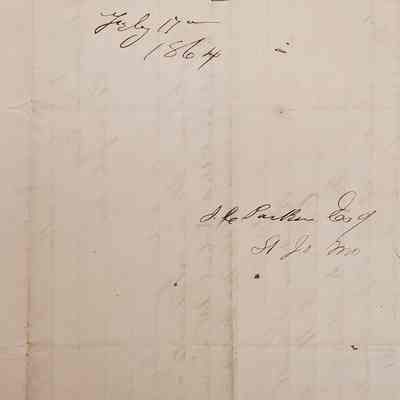 July 17th
1864
I. C. Parker Esq
St Jo Mo